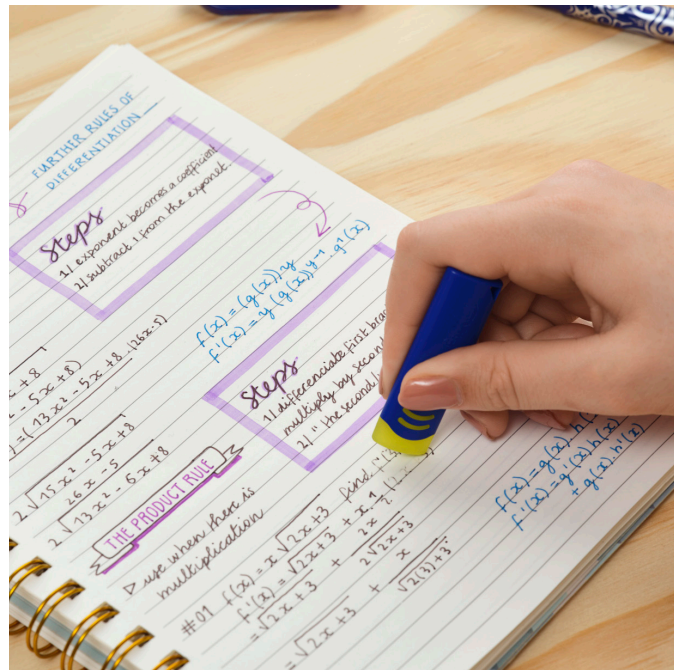 FURTHER RULES OF
DIFFERENTIATION
Steps
1) exponent becomes a coefficient
2) subtract 1 from the exponet.
f(x) = (g(x))y
f'(x) = y(g(x))y-1 . g'(x)
Steps
1) differenciate first
multiply by second
2) " the second
+ 8
- 5x + 8)
= (13x² - 5x + 8 (26x-5)
2
2√15x² - 5x + 8
26x - 5
2√13x² - 6x + 8
THE PRODUCT RULE
▷ use when there is
multiplication
#01 f(x) = x√2x+3 find
f'(x) = √2x+3 + x.
= √2x+3 + 2x
2√2x+3
= √2x+3 + x
√2(3)+3
f(x) = g(x).
f'(x) = g'(x) h(x)
+ g(x). h'(x)